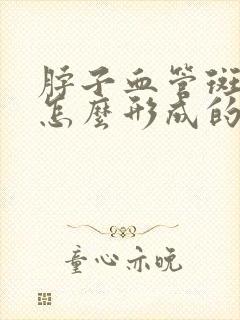 脖子血管斑
怎麼形成的
童心亦晚